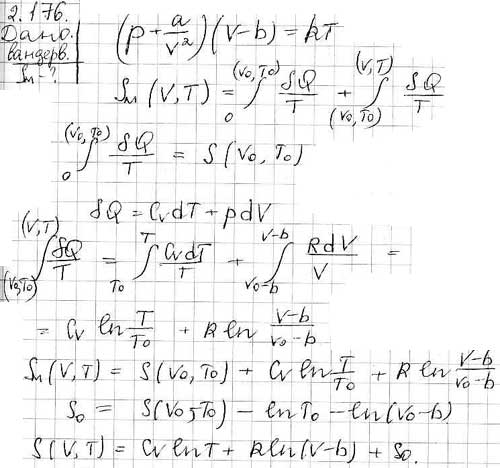 2.176.
Дано.
вандерв.
Sм - ?
(p + a/V²)(V-b) = RT
Sм (V,T) = ∫₀^(V₀,T₀) δQ/T + ∫_(V₀,T₀)^(V,T) δQ/T
∫₀^(V₀,T₀) δQ/T = S(V₀,T₀)
δQ = CvdT + pdV
∫_(V₀,T₀)^(V,T) δQ/T = ∫_T₀^T CvdT/T + ∫_(V₀-b)^(V-b) RdV/V =
= Cv ln T/T₀ + R ln (V-b)/(V₀-b)
Sм(V,T) = S(V₀,T₀) + Cv ln T/T₀ + R ln (V-b)/(V₀-b)
S₀ = S(V₀;T₀) - lnT₀ - ln(V₀-b)
S(V,T) = Cv lnT + R ln(V-b) + S₀.